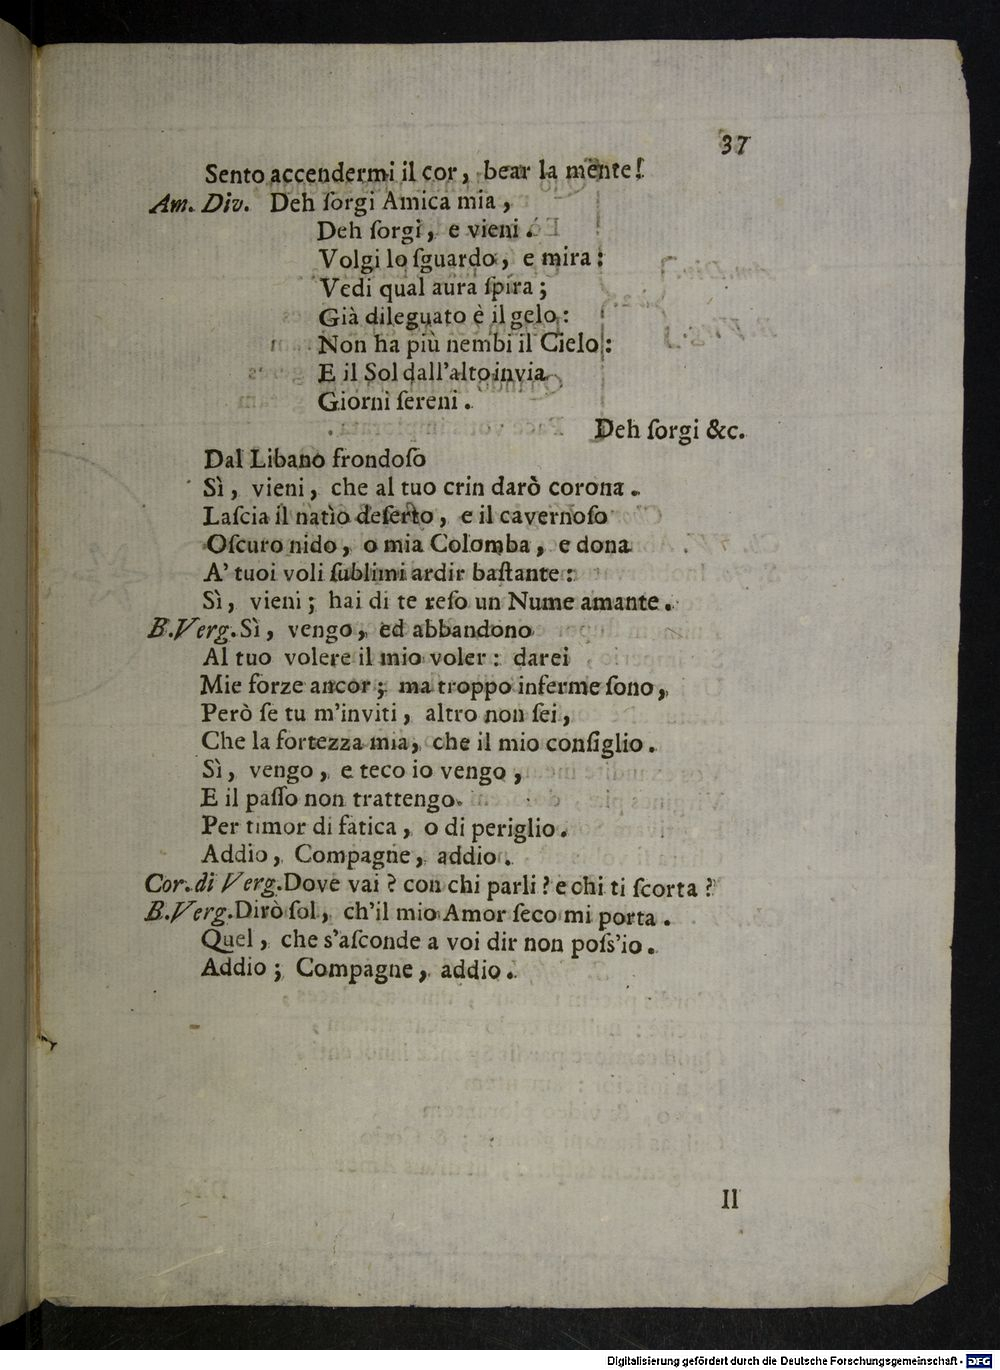 37
Sento accendermi il cor, bear la mente!
Am. Div. Deh ſorgi Amica mia,
Deh ſorgi, e vieni.
Volgi lo ſguardo, e mira:
Vedi qual aura ſpira;
Già dileguato è il gelo:
Non ha più nembi il Cielo:
E il Sol dall'alto invia
Giorni ſereni.
Deh ſorgi &c.
Dal Libano frondoſo
Sì, vieni, che al tuo crin darò corona.
Laſcia il natìo deſerto, e il cavernoſo
Oſcuro nido, o mia Colomba, e dona
A' tuoi voli ſublimi ardir baſtante:
Sì, vieni; hai di te reſo un Nume amante.
B.Verg. Sì, vengo, ed abbandono
Al tuo volere il mio voler: darei
Mie forze ancor; ma troppo inferme ſono,
Però ſe tu m'inviti, altro non ſei,
Che la fortezza mia, che il mio conſiglio.
Sì, vengo, e teco io vengo,
E il paſſo non trattengo.
Per timor di fatica, o di periglio.
Addio, Compagne, addio.
Cor. di Verg. Dove vai? con chi parli? e chi ti ſcorta?
B.Verg. Dirò ſol, ch'il mio Amor ſeco mi porta.
Quel, che s'aſconde a voi dir non poſs'io.
Addio; Compagne, addio.
II
Digitalisierung gefördert durch die Deutsche Forschungsgemeinschaft - DFG